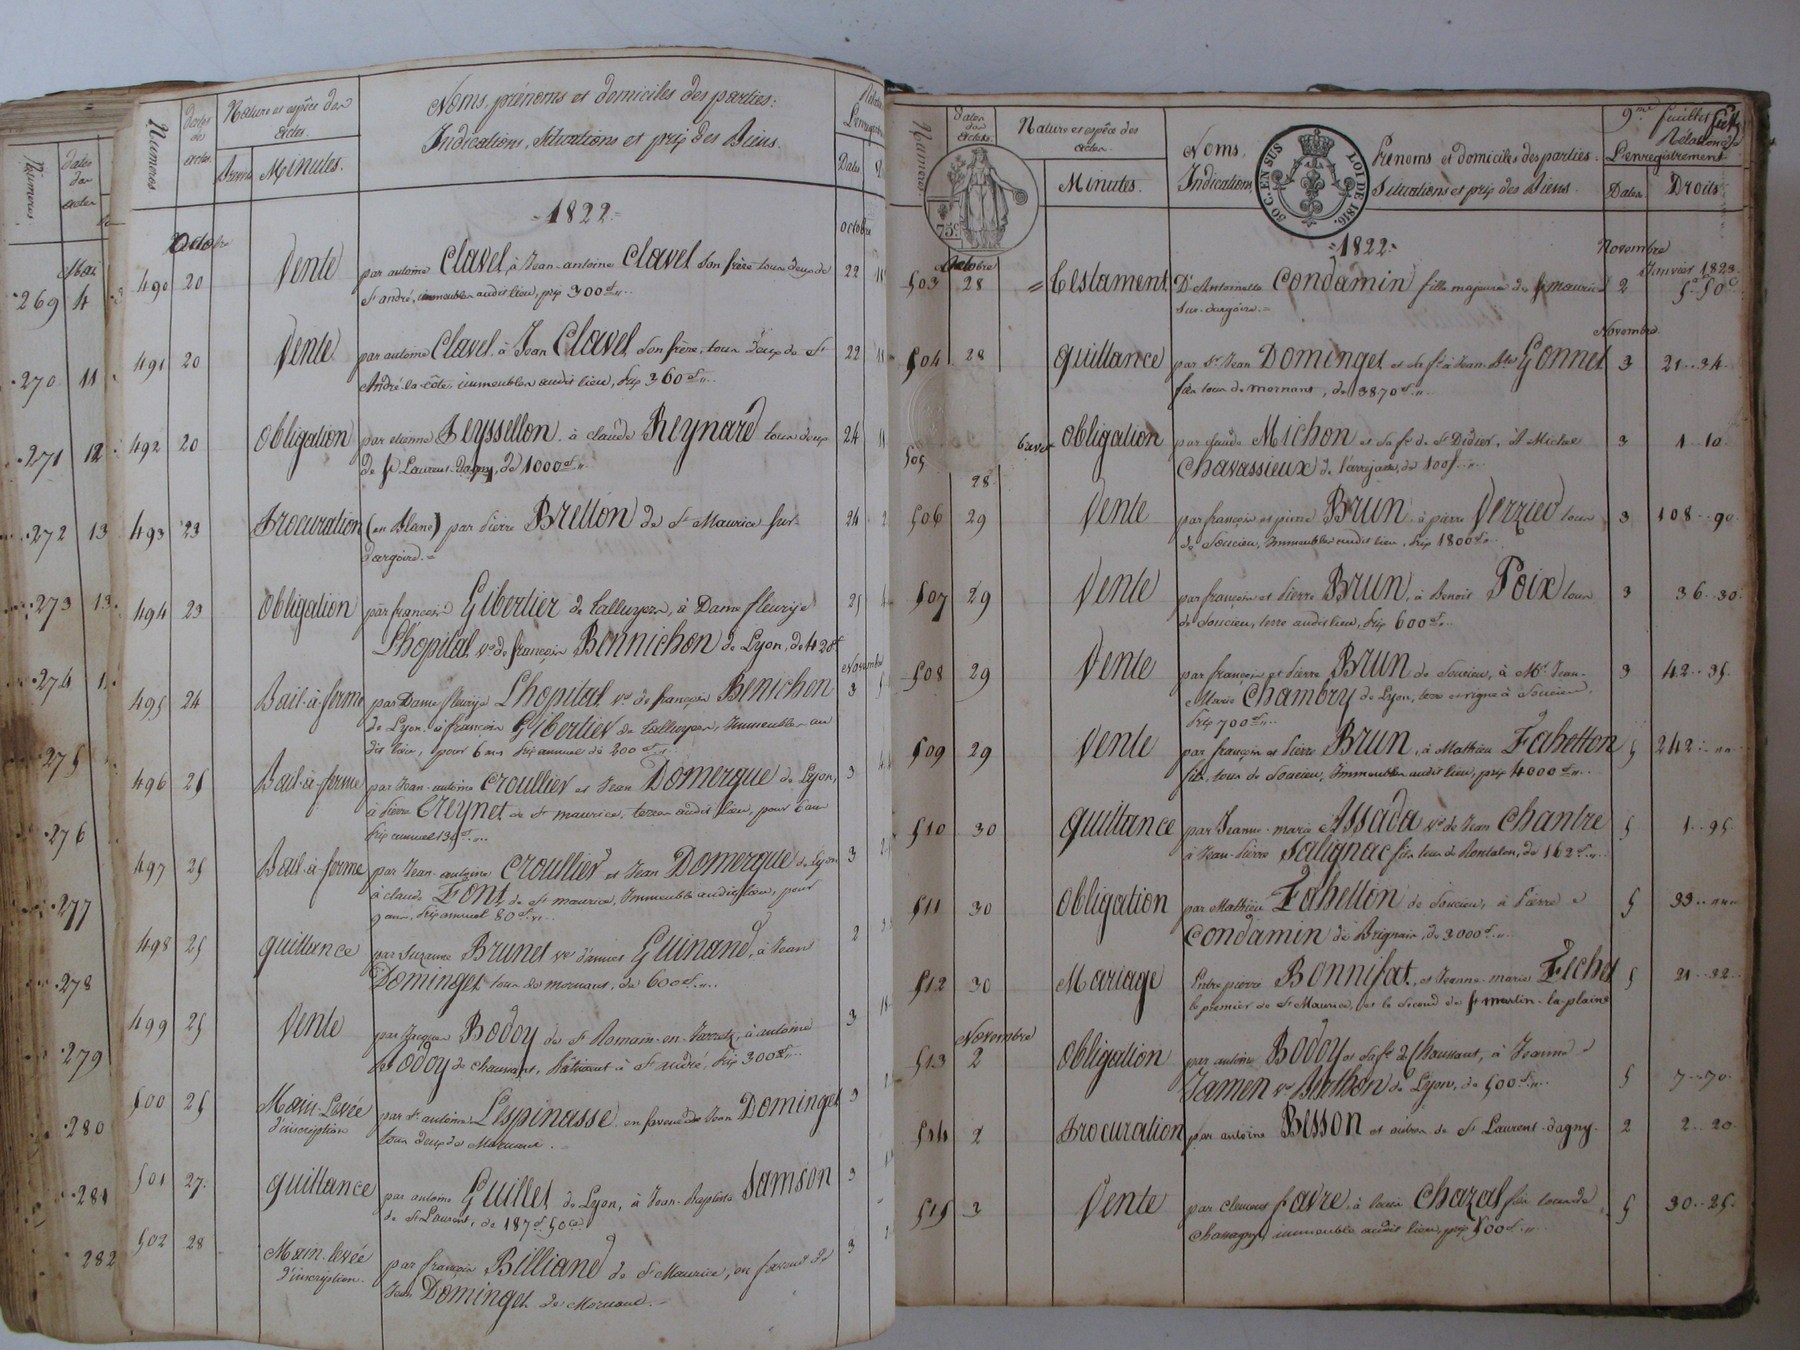 Numéros
dates
des
actes
Mai
269 4
270 11
271 12
272 13
273 13
274
275
276
277
278
279
280
281
282
Numéros
dates
des
actes
Nature et espèce des
actes.
Minutes.
Noms, prénoms et domiciles des parties:
Indications, Situations et prix des Biens.
Dates
-1822-
Octobre
490 20 Vente par antoine Clavel, à Jean-antoine Clavel son frère tous deux de 22
St andré, immeubles audit lieu, prix 300f
491 20 Vente par antoine Clavel à Jean Clavel son frère, tous deux de St 22
André-la-côte, immeubles audit lieu, prix 360f
492 20 Obligation par etienne Feyssellon à claude Reynard tous deux 24
de St Laurent-dagny, de 1000f
493 23 Procuration (en blanc) par pierre Bretton de St Maurice sur- 24
dargoire.=
494 23 Obligation par françois Gibertier de talluyers, à Dame fleurye 25
Lhopital, ve de françois Bonnichon de Lyon, de 420f
Novembre
495 24 Bail-à-ferme par Dame fleurye Lhopital ve de françois Benichon 3
de Lyon à françois Gibertier de talluyers, Immeubles au
dit lieu, pour 6 ans prix annuel de 200f
496 25 Bail-à-ferme par Jean-antoine Croullier et Jean Domergue de Lyon, 3
à pierre Creynet de St maurice, terres audit lieu, pour 6 ans
prix annuel 135f
497 25 Bail-à-ferme par Jean-antoine Croullier et Jean Domergue de Lyon 3
à claude Font de St maurice, Immeubles audit lieu, pour
9 ans, prix annuel 80f
498 25 quittance par Suzanne Brunet ve d'annet Guinand, à Jean 2
Dominget tous de mornant, de 600f
499 25 Vente par Jacques Bodoy de St Romain-en-Jarrets, à antoine 3
Bodoy de chaussant, Bâtiment à St andré, prix 300f
500 25 Main-Levée par St antoine Lespinasse en faveur de Jean Dominget 3
d'inscription tous deux de Mornant.
501 27 quittance par antoine Guillet de Lyon, à Jean-Baptiste Samson 3
de St Laurent, de 187f 50c
502 28 Main-levée par françois Billiand de St Maurice, en faveur de 3
d'inscription. Jean Dominget de Mornant.=
9me feuillet
Numéros
dates
des
actes
Nature et espèce des
actes
Minutes.
Noms, Prénoms et domiciles des parties.
Indications, Situations et prix des Biens.
Relation de
L'enregistrement
Dates Droits
75c
50 C. EN SUS
LOI DE 1816.
-1822-
Octobre
Novembre
Janvier 1823
503 28 = Testament De Antoinette Condamin fille majeure de St Maurice 2 5 50c
sur-dargoire.=
Novembre
504 28 quittance par St Jean Dominget et sa fe à Jean Gonnet 3 21 34
fils tous de mornant, de 3870f
505 28 brevet Obligation par claude Michon et sa fe de St Didier, à Michel 3 1 10
Chavassieux de larrajasse, de 100f
506 29 Vente par françois et pierre Brun à pierre Verzieu tous 3 108 90
de Soucieu, Immeubles audit lieu, prix 1800f
507 29 Vente par françois et pierre Brun, à Benoit Foix tous 3 36 30
de Soucieu, terre audit lieu, prix 600f
508 29 Vente par françois et pierre Brun de soucieu, à Mr Jean- 3 42 35
Marie Chambry de Lyon, terre et vigne à Soucieu,
prix 700f
509 29 Vente par françois et pierre Brun, à Mathieu Fahetton 5 242
fils, tous de Soucieu, Immeubles audit lieu, prix 4000f
510 30 quittance par Jeanne-marie Assada ve de Jean Chantre 5 1 95
à Jean-pierre Salignac fils tous de Rontalon, de 162f
511 30 Obligation par Mathieu Fahetton de Soucieu, à pierre 5 33
Condamin de Brignais, de 3000f
512 30 Mariage Entre pierre Bonnifat, et Jeanne marie Fechet 5 21 32
le premier de St Maurice, et la seconde de St martin-la-plaine
Novembre
513 2 Obligation par antoine Bodoy et sa fe de chaussant, à Jeanne
Jamen ve Berthon de Lyon, de 500f 5 7 70
514 2 Procuration par antoine Besson et autres de St Laurent-dagny. 2 2 20
515 3 Vente par clement favre à louis Chazal fils tous de 5 30 25
Chassagny, immeuble audit lieu, prix 500f